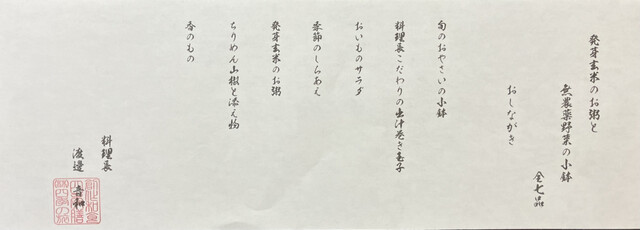 発芽玄米のお粥と
無農薬野菜の小鉢
全七品
おしながき
旬のおやさいの小鉢
料理長こだわりの出汁巻き玉子
おいものサラダ
季節のしらあえ
発芽玄米のお粥
ちりめん山椒と添え物
香のもの
料理長
渡邊